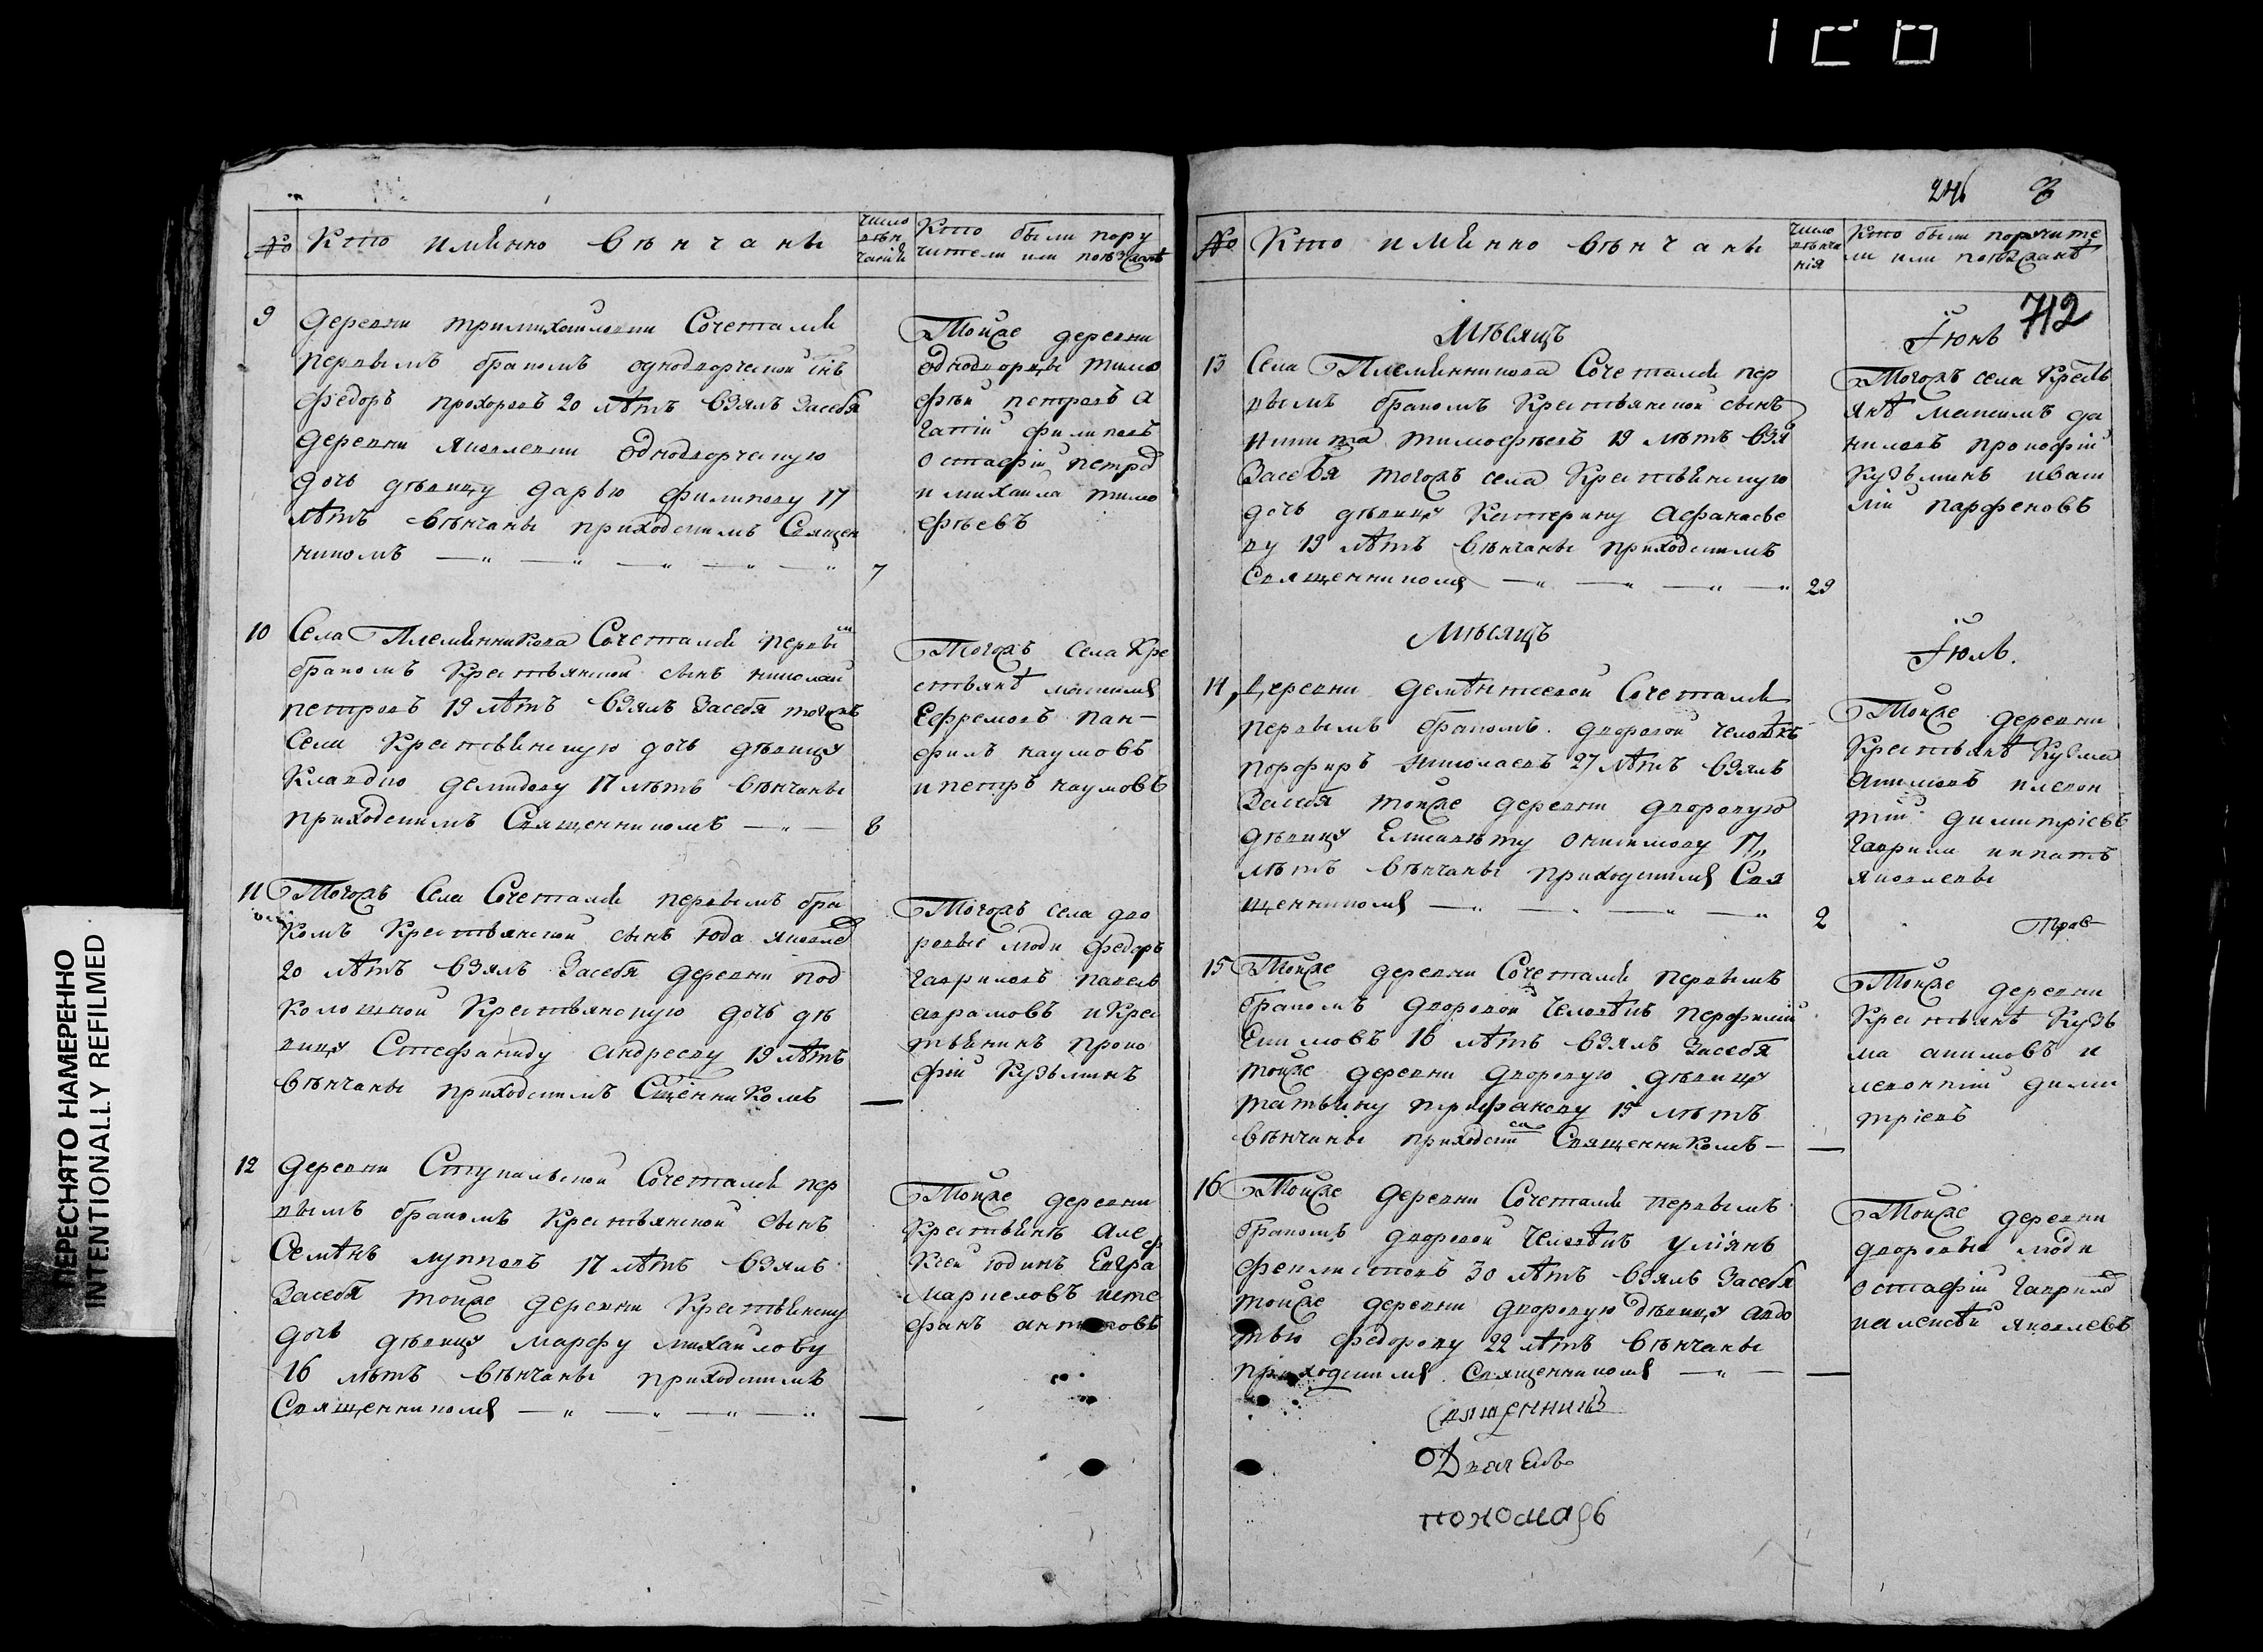 246
№ Кто именно венчаны
число венчаний
Кто были пору
чители или поезжанѣ
9 Деревни Тримихайловки Сочетался
первымъ бракомъ однодворческой
федоръ прохоровъ 20 лѣтъ взялъ засебя
деревни яковлевки однодворческую
дочь дѣвицу дарью филипову 17
лѣтъ вѣнчаны приходскимъ Священ
никомъ
7
Тойже деревни
однодворцы тимо
фѣй петровъ
филиповъ
остафій петровъ
и михайла тимо
фѣевъ
10 Села Племянникова Сочетался первым
бракомъ Крестьянской сынъ николай
петровъ 19 лѣтъ взялъ засебя тогожъ
села Крестьянскую дочь дѣвицу
Клавдию демидову 17 лѣтъ вѣнчаны
приходскимъ Священникомъ
8
Тогожъ села Кре
стьянѣ максимъ
Ефремовъ пан-
филъ наумовъ
и петръ наумовъ
11 Тогожъ Села Сочетался первымъ бра
комъ Крестьянской сынъ юда яковлев
20 лѣтъ взялъ засебя деревни под
колошной Крестьянскую дочь дѣ
вицу Стефаниду андрееву 19 лѣтъ
вѣнчаны приходскимъ Сщенникомъ
Тогожъ села дво
ровые люди федоръ
гавриловъ павелъ
аврамовъ и Крес
тьянинъ проко
фій Кузьминъ
12 Деревни Ступальской Сочетался пер
вымъ бракомъ Крестьянской сынъ
Семѣнъ лупповъ 17 лѣтъ взялъ
засебя тойже деревни Крестьянску
дочь дѣвицу марфу михайлову
16 лѣтъ вѣнчаны приходскимъ
Священникомъ
Тойже деревни
Крестьянѣ алек
сѣй юдинъ Евгра
маркеловъ исте
фанъ антиповъ
№ Кто именно вѣнчаны
число вѣнча
нія
Кто были поручите
ли или поезжанѣ
712
Мѣсяцъ
Іюнь
13 Села Племянникова Сочетался пер
вымъ бракомъ Крестьянской сынъ
никита тимофѣевъ 19 лѣтъ взя
засебя тогожъ села Крестьянскую
дочь дѣвицу Катерину афанасье
ву 19 лѣтъ вѣнчаны приходскимъ
Священникомъ
29
Тогожъ села Кресть
янѣ максимъ да
ниловъ прокофій
Кузьминъ иваси
лій парфеновъ
Мѣсяцъ
Іюль.
14 Деревни деменьтеевой Сочетался
первымъ бракомъ дворовой человѣкъ
порфиръ николаевъ 27 лѣтъ взялъ
засебя тойже деревни дворовую
дѣвицу Елисавету онисимову 17
лѣтъ вѣнчаны приходскимъ Свя
щенникомъ
2
Тойже деревни
Крестьянѣ Кузма
акимовъ илеон
тій димитріевъ
гаврила игнатъ
яковлевы
15 Тойже деревни Сочетался первымъ
бракомъ дворовой человѣкъ перфилій
Екимовъ 16 лѣтъ взялъ засебя
тойже деревни дворовую дѣвицу
татьяну трифанову 15 лѣтъ
вѣнчаны приходским Священникомъ
Тойже деревни
Крестьянѣ Кузь
ма акимовъ и
леонтій дими
тріевъ
16 Тойже деревни Сочетался первымъ
бракомъ дворовой человѣкъ ульянъ
феклистовъ 30 лѣтъ взялъ засебя
тойже деревни дворовую дѣвицу авдо
тью федорову 22 лѣтъ вѣнчаны
приходскимъ Священникомъ
Тойже деревни
дворовые люди
остафій гаврилов
иалексѣй яковлевъ
Священникъ
Дьячекъ
пономарь
ПЕРЕСНЯТО НАМЕРЕННО
INTENTIONALLY REFILMED